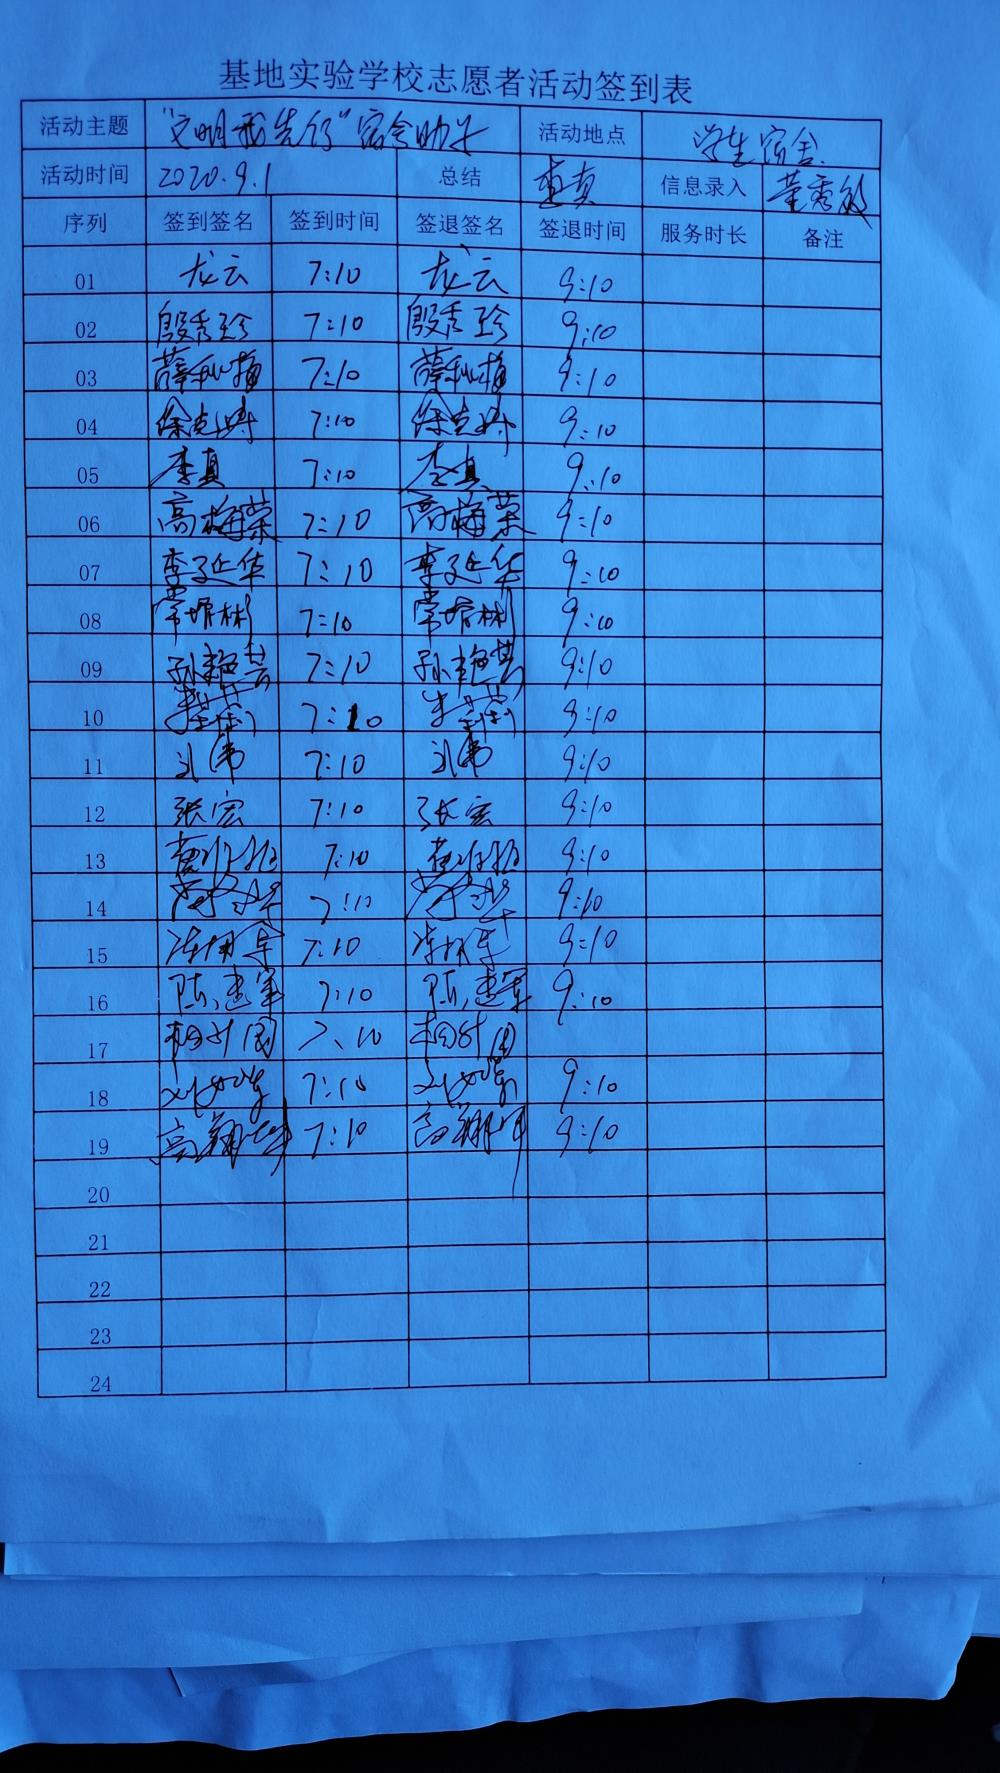 基地实验学校志愿者活动签到表
活动主题 "文明我先行"宿舍助 活动地点 学生宿舍.
活动时间 2020.9.1 总结 信息录入 董秀敏
序列 签到签名 签到时间 签退签名 签退时间 服务时长 备注
01 龙云 7:10 龙云 9:10
02 殷秀珍 7:10 殷秀珍 9:10
03 薛秋梅 7:10 薛秋梅 9:10
04 徐克婷 7:10 徐克婷 9:10
05 李真 7:10 李真 9:10
06 高梅荣 7:10 高梅荣 9:10
07 李延华 7:10 李延华 9:10
08 常增彬 7:10 常增彬 9:10
09 孙艳芸 7:10 孙艳芸 9:10
10 7:10 9:10
11 刘伟 7:10 刘伟 9:10
12 张宏 7:10 张宏 9:10
13 7:10 9:10
14 7:10 9:10
15 7:10 9:10
16 陈建军 7:10 陈建军 9:10
17 7:10
18 7:10 9:10
19 7:10 9:10
20
21
22
23
24